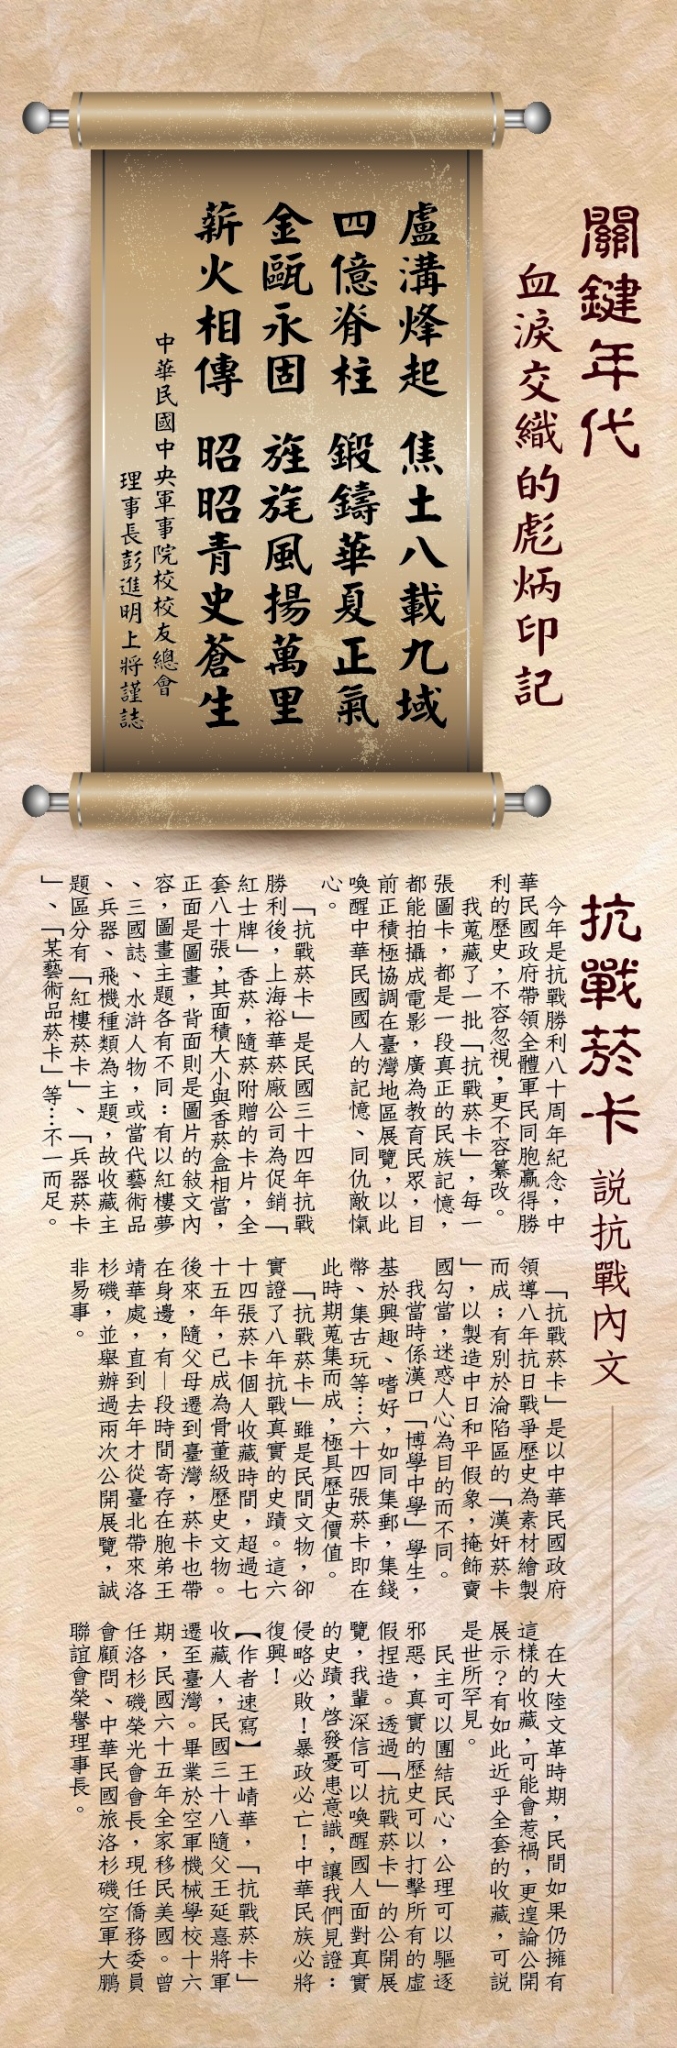 關鍵年代
血淚交織的彪炳印記
盧溝烽起 焦土八載九域
四億脊柱 鍛鑄華夏正氣
金甌永固 旌旄風揚萬里
薪火相傳 昭昭青史蒼生
中華民國中央軍事院校校友總會
理事長彭進明上將謹誌
抗戰菸卡 說抗戰內文
今年是抗戰勝利八十周年紀念，中
華民國政府帶領全體軍民同胞贏得勝
利的歷史，不容忽視，更不容纂改。
我蒐藏了一批「抗戰菸卡」，每一
張圖卡，都是一段真正的民族記憶，
都能拍攝成電影，廣為教育民眾，目
前正積極協調在臺灣地區展覽，以此
喚醒中華民國國人的記憶、同仇敵愾
心。
「抗戰菸卡」是民國三十四年抗戰
勝利後，上海裕華菸廠公司為促銷「
紅士牌」香菸，隨菸附贈的卡片，全
套八十張，其面積大小與香菸盒相當，
正面是圖畫，背面則是圖片的敍文內
容，圖畫主題各有不同：有以紅樓夢
、三國誌、水滸人物，或當代藝術品
、兵器、飛機種類為主題，故收藏主
題區分有「紅樓菸卡」、「兵器菸卡
」、「某藝術品菸卡」等…不一而足。
「抗戰菸卡」是以中華民國政府
領導八年抗日戰爭歷史為素材繪製
而成；有別於淪陷區的「漢奸菸卡
」，以製造中日和平假象，掩飾賣
國勾當，迷惑人心為目的而不同。
我當時係漢口「博學中學」學生，
基於興趣、嗜好，如同集郵，集錢
幣、集古玩等…六十四張菸卡即在
此時期蒐集而成，極具歷史價值。
「抗戰菸卡」雖是民間文物，卻
實證了八年抗戰真實的史蹟。這六
十四張菸卡個人收藏時間，超過七
十五年，已成為骨董級歷史文物。
後來，隨父母遷到臺灣，菸卡也帶
在身邊，有一段時間寄存在胞弟王
靖華處，直到去年才從臺北帶來洛
杉磯，並舉辦過兩次公開展覽，誠
非易事。
在大陸文革時期，民間如果仍擁有
這樣的收藏，可能會惹禍，更遑論公開
展示？有如此近乎全套的收藏，可說
是世所罕見。
民主可以團結民心，公理可以驅逐
邪惡，真實的歷史可以打擊所有的虛
假捏造。透過「抗戰菸卡」的公開展
覽，我輩深信可以喚醒國人面對真實
的史蹟，啓發憂患意識，讓我們見證：
侵略必敗！暴政必亡！中華民族必將
復興！
【作者速寫】王崝華，「抗戰菸卡」
收藏人，民國三十八隨父王延熹將軍
遷至臺灣。畢業於空軍機械學校十六
期，民國六十五年全家移民美國。曾
任洛杉磯榮光會會長，現任僑務委員
會顧問、中華民國旅洛杉磯空軍大鵬
聯誼會榮譽理事長。